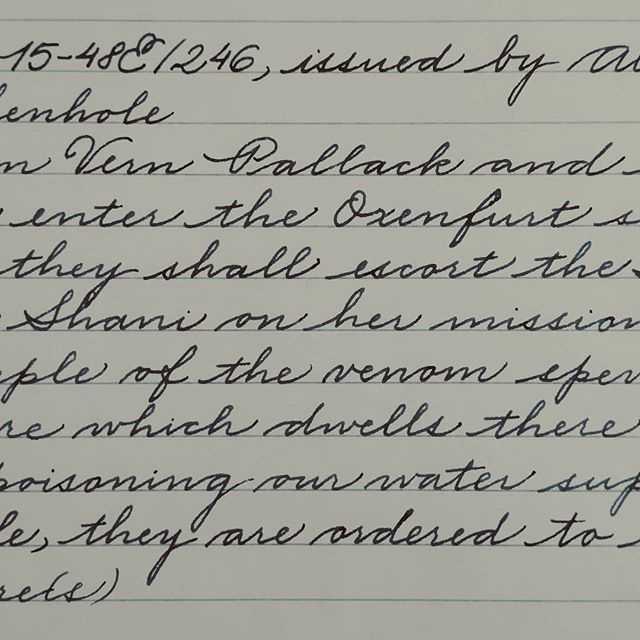 -15-48E/246, issued by Al
lenhole
n Vern Pallack and
enter the Oxenfurt s
they shall escort the
Shani on her mission
ple of the venom spew
re which dwells there
poisoning our water sup
le, they are ordered to
re(s)